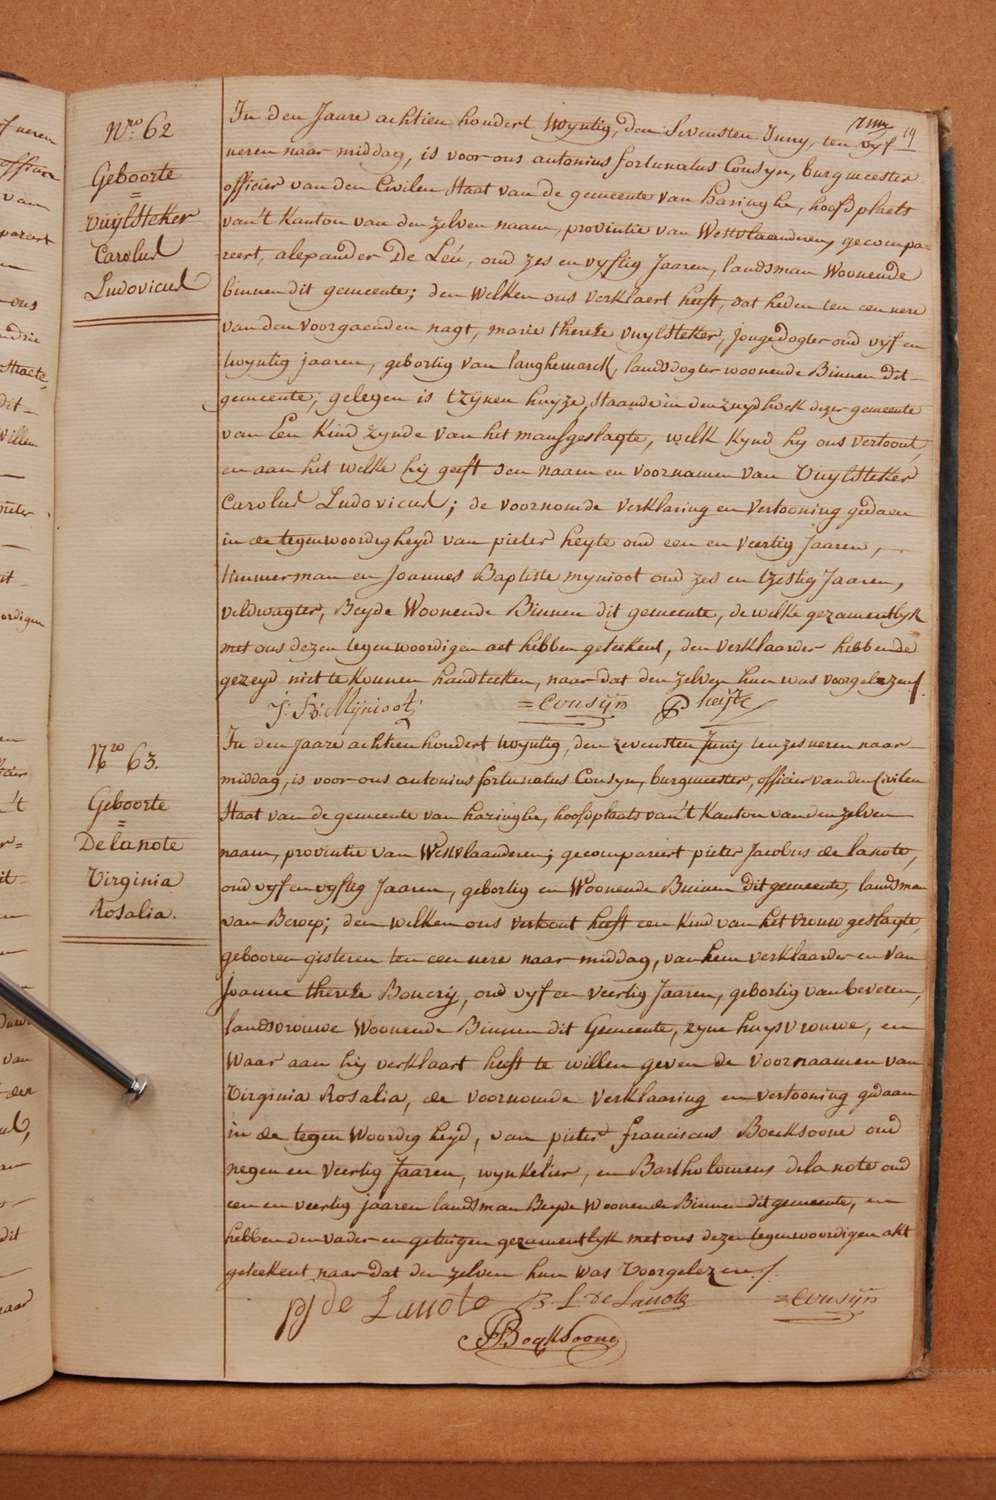 Nro 62
Geboorte
=
Vuylsteker
Carolus
Ludovicus
19
In den Jaare achtien hondert twyntig, den Sevensten Juny, ten vyf
ueren naar middag, is voor ons antonius fortunatus Cousyn, burgmeester
officier van den Civilen Staat van de gemeente van haringhe, hoofdplaets
van't Kanton van den zelven naam, provintie van Westvlaanderen, gecompa-
reert, alexander De Léu, oud zes en vyftig Jaaren, landsman Woonende
binnen dit gemeente; den Welken ons verklaert heeft, dat heden ten een uere
van den voorgaenden nagt, marie therese vuylsteker, jongedogter oud vyf en
twyntig jaaren, geboortig van langhemarck, landsdogter woonende Binnen dit-
gemeente, gelegen is t'zynen huyze, staande in den zuydhoek dezer gemeente
van Een Kind zynde van het mansgeslagte, welk Kynd hy ons vertoont,
en aan het welke hij geeft den naam en voornamen van Vuylsteker
Carolus Ludovicus; de voornoemde verklaring en vertooning gedaen
in de tegenwoordigheyd van pieter heyte oud een en veertig Jaaren,
timmerman en Joannes Baptiste mynioot oud zes en tzestig Jaaren,
veldwagter, Beyde Woonende Binnen dit gemeente, de welke gezamentlyk
met ons dezen tegenwoordigen act hebben geteekent, den verklaarder hebbende
gezeyd niet te Konnen handteeken, naar dat den zelven hun was voorgelezen /.
J: B: Mijnioot =Cousijn P heijte
Nro 63.
Geboorte
=
Delanote
Virginia
Rosalia.
In den jaare achtien hondert twyntig, den zevensten Junij ten zes ueren naar
middag, is voor ons antonius fortunatus Cousyn, burgmeester, officier van den Civilen
Staat van de gemeente van haringhe, hoofdplaats van't Kanton van den zelven
naam, provintie van Westvlaanderen; gecompariert pieter Jacobus de lanote,
oud vyf en vyftig Jaaren, geboortig en Woonende Binnen dit gemeente, landsman
van Beroep; den welken ons vertoont heeft een Kind van het vrouw geslagte,
gebooren gisteren ten een uere naar middag, van hem verklaarder en van
Joanne therese Boucrij, oud vyf en veertig Jaaren, geboortig van beveren,
landsvrouwe Woonende Binnen dit Gemeente, zyne huysvrouwe, en
Waar aan hij verklaart heeft te willen geven de voornaamen van
Virginia Rosalia, de voornoemde verklaaring en vertooning gedaan
in de tegenwoordigheyd, van pieter franciscus Boecksoone oud
negen en veertig Jaaren, wynkelier, en Bartholomeus delanote oud
een en veertig jaaren landsman Beyde Woonende Binnen dit gemeente, en
hebben den vader en getuigen gezamentlyk met ons dezen tegenwoordigen akt
geteekent naar dat den zelven hun was Voorgelezen /.
pj de Lanote B. L. de Lanote =Cousijn
PF Boeksoone